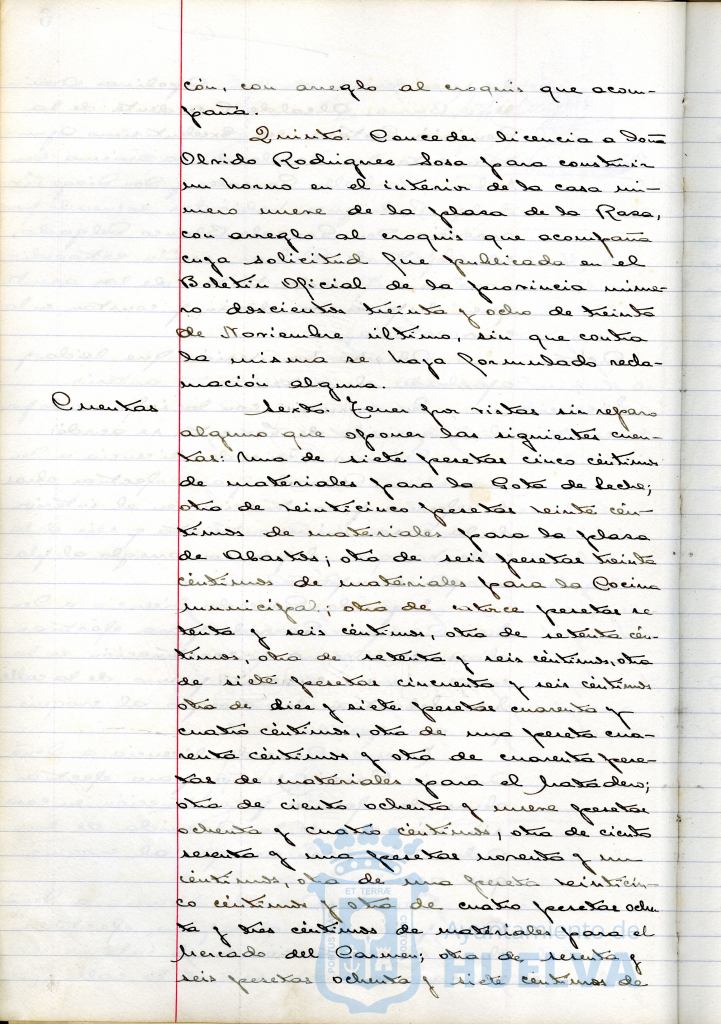 ción, con arreglo al croquis que acom-
paña.
Quinto. Conceder licencia a Doña
Olvido Rodriguez Sosa para construir
un horno en el interior de la casa nú-
mero nueve de la plaza de la Rasa,
con arreglo al croquis que acompaña
cuya solicitud fue publicada en el
Boletín Oficial de la provincia núme-
ro doscientos treinta y ocho de treinta
de Noviembre último, sin que contra
la misma se haya formulado recla-
mación alguna.
Cuentas
Sexto. Tener por vistas sin reparo
alguno que oponer las siguientes cuen-
tas: Una de siete pesetas cinco céntimos
de materiales para la Gota de Leche;
otra de veinticinco pesetas veinte cén-
timos de materiales para la plaza
de Abastos; otra de seis pesetas treinta
céntimos de materiales para la Cocina
municipal; otra de catorce pesetas se
tenta y seis céntimos, otra de setenta cén-
timos, otra de setenta y seis céntimos, otra
de siete pesetas cincuenta y seis céntimos
otra de diez y siete pesetas cuarenta y
cuatro céntimos, otra de una peseta cua-
renta céntimos y otra de cuarenta pese-
tas de materiales para el Matadero;
otra de ciento ochenta y nueve pesetas
ochenta y cuatro céntimos, otra de ciento
sesenta y una pesetas noventa y un
céntimos, otra de una peseta veinticin-
co céntimos y otra de cuatro pesetas ochen
ta y tres céntimos de materiales para el
Mercado del Carmen; otra de sesenta y
seis pesetas ochenta y siete céntimos de
ET TERRÆ
PORTUS
CUSTODIA
Ayuntamiento de
HUELVA